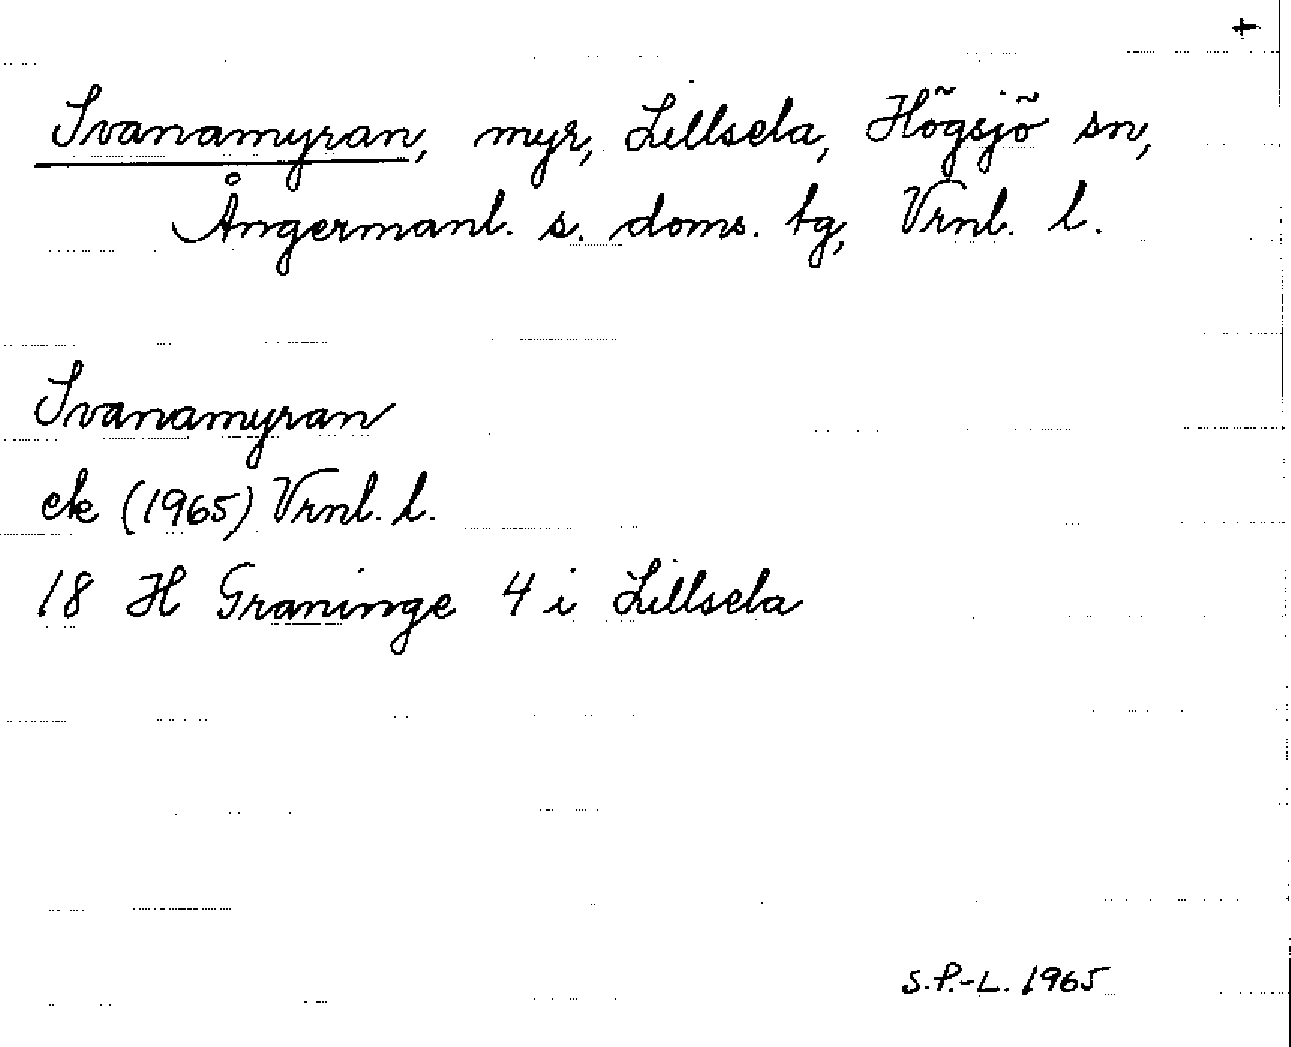 +
Svanamyran, myr, Lillsela, Högsjö sn,
Ångermanl. s. doms. tg, Vrnl. l.
Svanamyran
ek (1965) Vrnl. l.
18 H Graninge 4 i Lillsela
S.P.-L. 1965